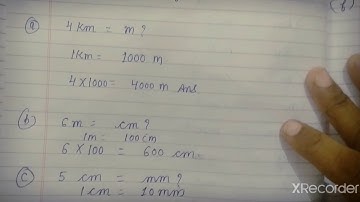 (f)
(a) 4 km = m ?
1 Km = 1000 m
4 × 1000 = 4000 m Ans
(b) 6 m = cm ?
1m = 100 cm
6 × 100 = 600 cm.
(c) 5 cm = mm ?
1 cm = 10 mm
XRecorder